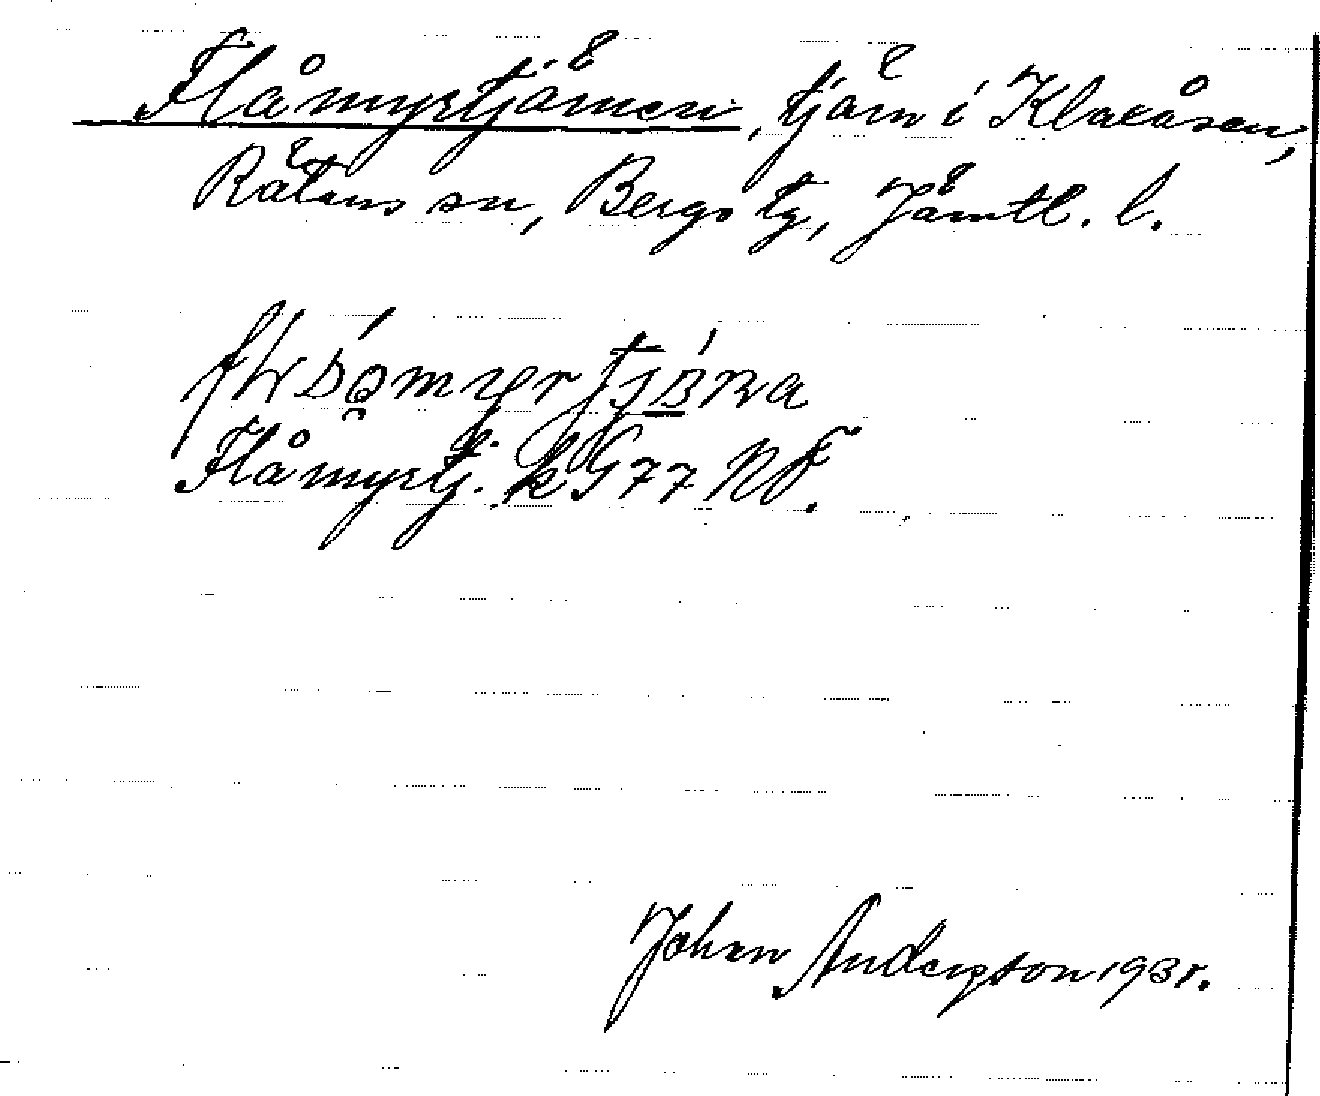 Flåmyrtjärnen, tjärn i Klaxåsen,
Rätans sn, Bergs tg, Jämtl. l.
Flåmyrtj. k G77
Johan Andersson 1931.